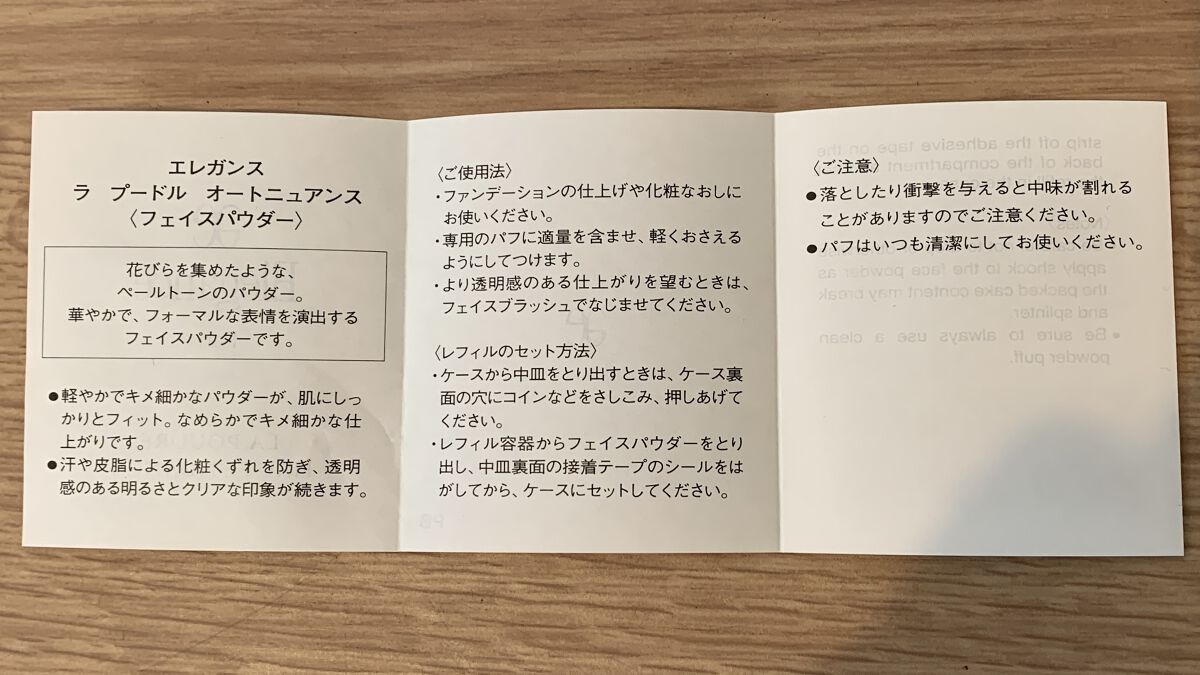 エレガンス
ラ　プードル　オートニュアンス
〈フェイスパウダー〉
花びらを集めたような、
ペールトーンのパウダー。
華やかで、フォーマルな表情を演出する
フェイスパウダーです。
●軽やかでキメ細かなパウダーが、肌にしっ
かりとフィット。なめらかでキメ細かな仕
上がりです。
●汗や皮脂による化粧くずれを防ぎ、透明
感のある明るさとクリアな印象が続きます。
〈ご使用法〉
・ファンデーションの仕上げや化粧なおしに
お使いください。
・専用のパフに適量を含ませ、軽くおさえる
ようにしてつけます。
・より透明感のある仕上がりを望むときは、
フェイスブラッシュでなじませてください。
〈レフィルのセット方法〉
・ケースから中皿をとり出すときは、ケース裏
面の穴にコインなどをさしこみ、押しあげて
ください。
・レフィル容器からフェイスパウダーをとり
出し、中皿裏面の接着テープのシールをは
がしてから、ケースにセットしてください。
〈ご注意〉
●落としたり衝撃を与えると中味が割れる
ことがありますのでご注意ください。
●パフはいつも清潔にしてお使いください。
strip off the adhesive tape on the
back of the compartment
apply shock to the face powder as
the packed cake content may break
and splinter.
● Be sure to always use a clean
powder puff.